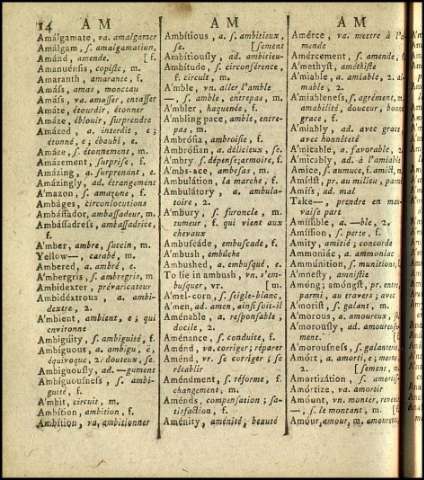 14 A M
A M
A M
Amálgamate, va. amalgamer
Amálgam, s. amalgamation,
Amánd, amende. [f.
Amanuénsis, copiste, m.
Amaranth, amarance, f.
Amáss, amas, monceau
Amáss, va. amasser, entasser
Amáte, étourdir, étonner
Amáze, éblouir, surprendre
Amázed, a. interdit, e;
étonné, e; ébaubi, e.
Amáze, s. étonnement, m.
Amázement, surprise, f.
Amázing, a. surprenant, e
Amázingly, ad. étrangement
A'mazon, s. amazone, f.
Ambáges, circonlocutions
Ambássador, ambassadeur, m.
Ambássadress, ambassadrice,
f.
A'mber, ambre, succin, m.
Yellow—, carabé, m.
Ambered, a. ambré, e.
A'mbergris, s. ambregris, m
Ambidexter, prévaricateur
Ambidéxtrous, a. ambi-
dextre, 2.
A'mbient, ambiant, e; qui
environne
Ambigúity, s. ambiguité, f.
Ambíguous, a. ambigu, ë,
équivoque, 2; douteux, se.
Ambíguously, ad. —gument
Ambíguousness, s. ambi-
guité, f.
A'mbit, circuit, m.
Ambítion, ambition, f.
Ambítion, va, ambitionner
Ambítious, a. s. ambitieux,
se. [sement
Ambítiously, ad. ambitieu-
Ambitude, s. circonférence,
f. circuit, m.
A'mble, vn. aller l'amble
—, s. amble, entrepas, m.
A'mbler, haquenée, f.
A'mbling pace, amble, entre-
pas, m.
Ambrósia, ambroisie, f.
Ambrósian, a. délicieux, se.
A'mbry, s. dépense; armoire, f.
A'mbs-ace, ambesas, m.
Ambulátion, la marche, f.
A'mbulatory, a. ambula-
toire, 2.
A'mbury, s. furoncle, m.
tumeur, f. qui vient aux
chevaux
Ambuscáde, embuscade, f.
A'mbush, embûche
A'mbushed, a. embusqué, e.
To lie in ambush, vn. s'em-
busquer, vr. [m.
A'mel-corn, s. seigle-blanc,
A'men, ad. amen, ainsi soit-il
Aménable, a. responsable,
docile, 2.
Aménance, s. conduite, f.
Aménd, va. corriger; réparer
Aménd, vr. se corriger; se
rétablir
Améndment, s. réforme, f.
changement, m.
Aménds, compensation; sa-
tisfaction, f.
Aménity, aménité; beauté
Amérce, va. mettre à l'a-
mende
Amércement, s. amende, f.
A'methyst, améthiste
A'miable, a. amiable, 2. ai-
mable, 2.
A'miableness, s. agrément, m.
amabilité, douceur, bonne
grace, f.
A'miably, ad. avec grace,
avec honnêteté
A'micable, a. favorable, 2.
A'micably, ad. à l'amiable
Amíce, s. aumuce, f. amict, m.
Amídst, pr. au milieu, parmi
Amíss, ad. mal
Take—, prendre en mau-
vaise part
Amíssible, a. —ble, 2.
Amíssion, s. perte, f.
Amity, amitié; concorde
Ammoníac, a. ammoniac
Ammunítion, s. munitions, f.
A'mnesty, amnistie
Amóng; amóngst, pr. entre,
parmi, au travers; avec
A'morist, s. galant, m.
A'morous, a. amoureux,
A'morously, ad. amoureuse-
ment.
A'morousness, s. galanterie,
Amórt, a. amorti, e; morne,
2. [sement, m.
Amortizátion, s. amortis-
Amórtize, va. amortir
Amóunt, vn. monter, reven-
—, s. le montant, m. [ir
Amóur, amour, m. amourette,